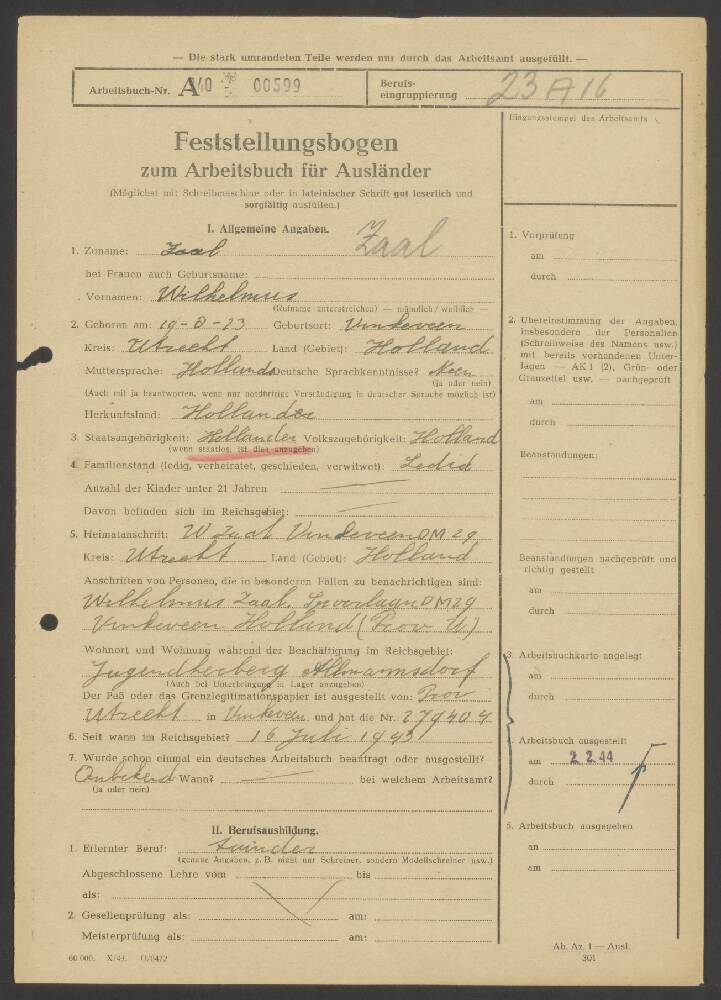 — Die stark umrandeten Teile werden nur durch das Arbeitsamt ausgefüllt. —
Arbeitsbuch-Nr. A 40 00599
Berufs-
eingruppierung 23 A 16
Eingangsstempel des Arbeitsamts
Feststellungsbogen
zum Arbeitsbuch für Ausländer
(Möglichst mit Schreibmaschine oder in lateinischer Schrift gut leserlich und
sorgfältig ausfüllen.)
I. Allgemeine Angaben. Zaal
1. Zuname: Zaal
bei Frauen auch Geburtsname:
Vornamen: Wilhelmus
(Rufname unterstreichen) — männlich / weiblich —
2. Geboren am: 19-8-23 Geburtsort: Vinkeveen
Kreis: Utrecht Land (Gebiet): Holland
Muttersprache: Hollands Deutsche Sprachkenntnisse? Neen
(ja oder nein)
(Auch mit ja beantworten, wenn nur notdürftige Verständigung in deutscher Sprache möglich ist)
Herkunftsland: Hollander
3. Staatsangehörigkeit: Hollander Volkszugehörigkeit: Holland
(wenn staatlos, ist dies anzugeben)
4. Familienstand (ledig, verheiratet, geschieden, verwitwet): Ledid
Anzahl der Kinder unter 21 Jahren
Davon befinden sich im Reichsgebiet:
5. Heimatanschrift: W Zaal Vinkeveen DM 29
Kreis: Utrecht Land (Gebiet): Holland
Anschriften von Personen, die in besonderen Fällen zu benachrichtigen sind:
Wilhelmus Zaal. DM29
Vinkeveen Holland (Prov U)
Wohnort und Wohnung während der Beschäftigung im Reichsgebiet:
Jugendherberg Allmannsdorf
(Auch bei Unterbringung in Lager anzugeben)
Der Paß oder das Grenzlegitimationspapier ist ausgestellt von: Prov
Utrecht in Vinkeveen und hat die Nr. 279404
6. Seit wann im Reichsgebiet? 16 Juli 1943
7. Wurde schon einmal ein deutsches Arbeitsbuch beantragt oder ausgestellt?
Onbekend Wann? bei welchem Arbeitsamt?
(ja oder nein)
II. Berufsausbildung.
1. Erlernter Beruf: Tuinder
(genaue Angaben, z. B. nicht nur Schreiner, sondern Modellschreiner usw.)
Abgeschlossene Lehre vom bis
als:
2. Gesellenprüfung als: am:
Meisterprüfung als: am:
60 000. X/43. O/0472
1. Vorprüfung
am
durch
2. Übereinstimmung der Angaben,
insbesondere der Personalien
(Schreibweise des Namens usw.)
mit bereits vorhandenen Unter-
lagen — AK 1 (2), Grün- oder
Grauzettel usw. — nachgeprüft
am
durch
Beanstandungen:
Beanstandungen nachgeprüft und
richtig gestellt
am
durch
3. Arbeitsbuchkarte angelegt
am
durch
4. Arbeitsbuch ausgestellt
am 2. 2. 44
durch
5. Arbeitsbuch ausgegeben
an
am
Ab. Az. 1 — Ausl.
301